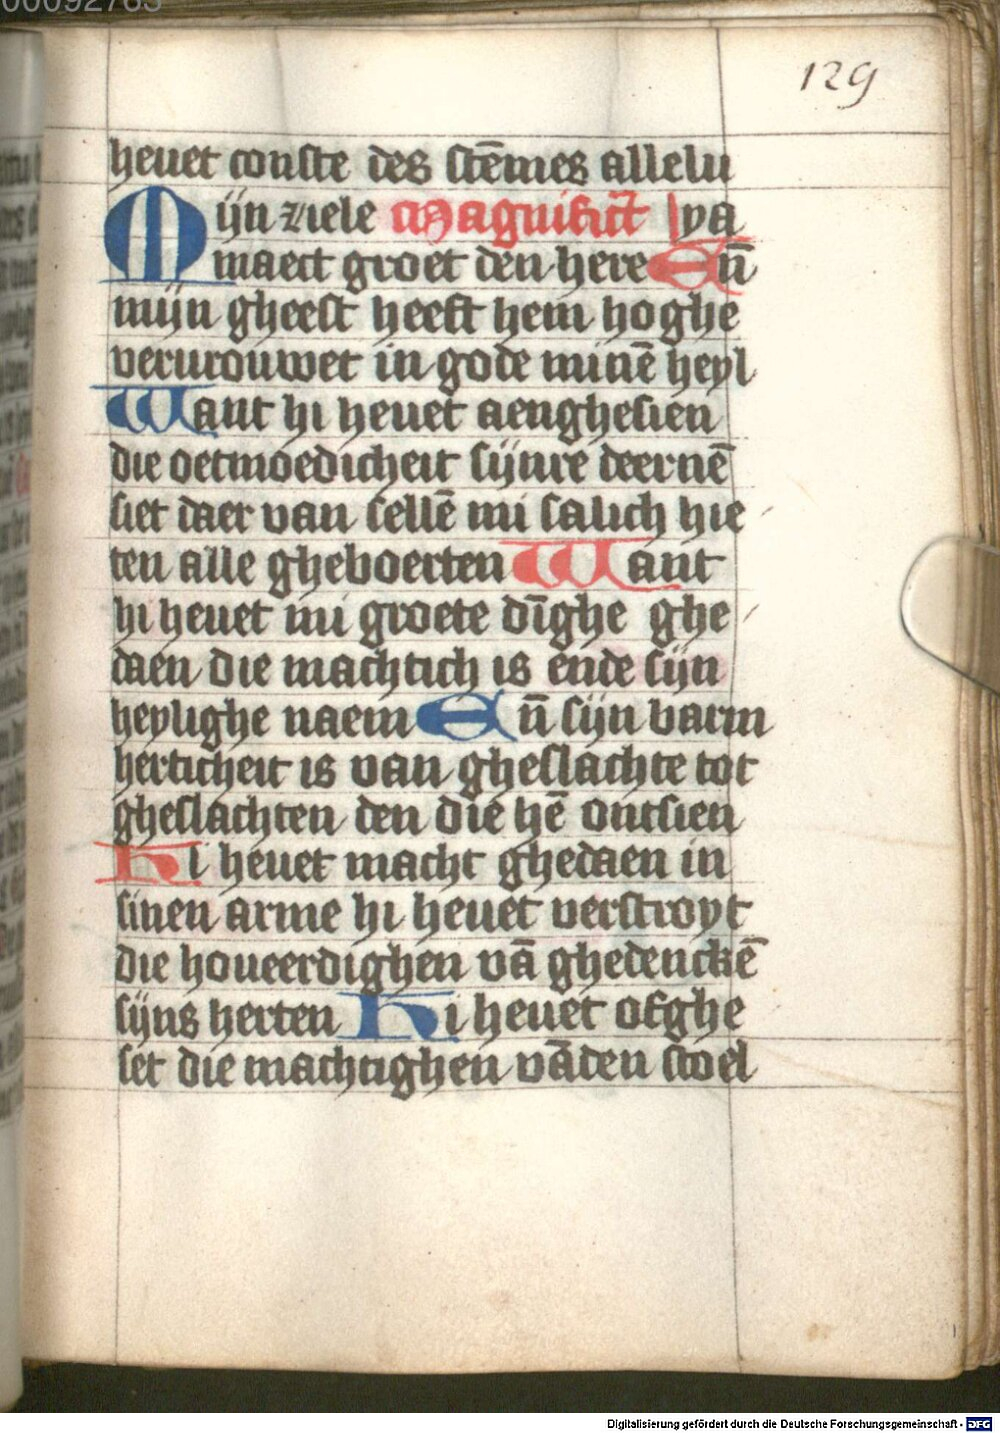 00092763
129
heuet conste des stēmes allelu
Mijn ziele Magnificat ya
maect groet den here En̄
mijn gheest heeft hem hoghe
verurouwet in gode minē heyl
Want hi heuet aenghesien
die oetmoedicheit sijnre deernē
siet daer van sellē mi salich hie
ten alle gheboerten Want
hi heuet mi groete dīghe ghe
daen die machtich is ende sijn
heylighe naem En̄ sijn barm
herticheit is van gheslachte tot
gheslachten den die hē ontsien
Hi heuet macht ghedaen in
sinen arme hi heuet verstroyt
die houeerdighen vā ghedenckē
sijns herten Hi heuet ofghe
set die machtighen vāden stoel
Digitalisierung gefördert durch die Deutsche Forschungsgemeinschaft - DFG